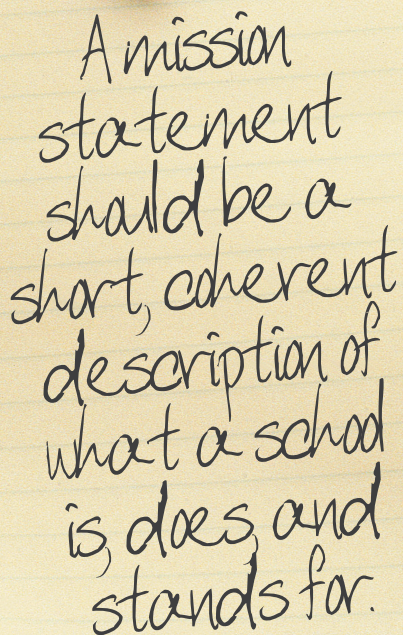 A mission
statement
should be a
short, coherent
description of
what a school
is, does, and
stands for.